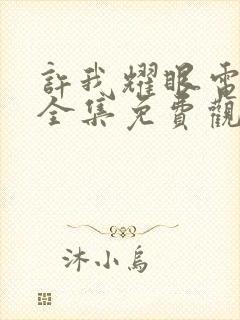 許我耀眼電
全集免費觀
沐小烏